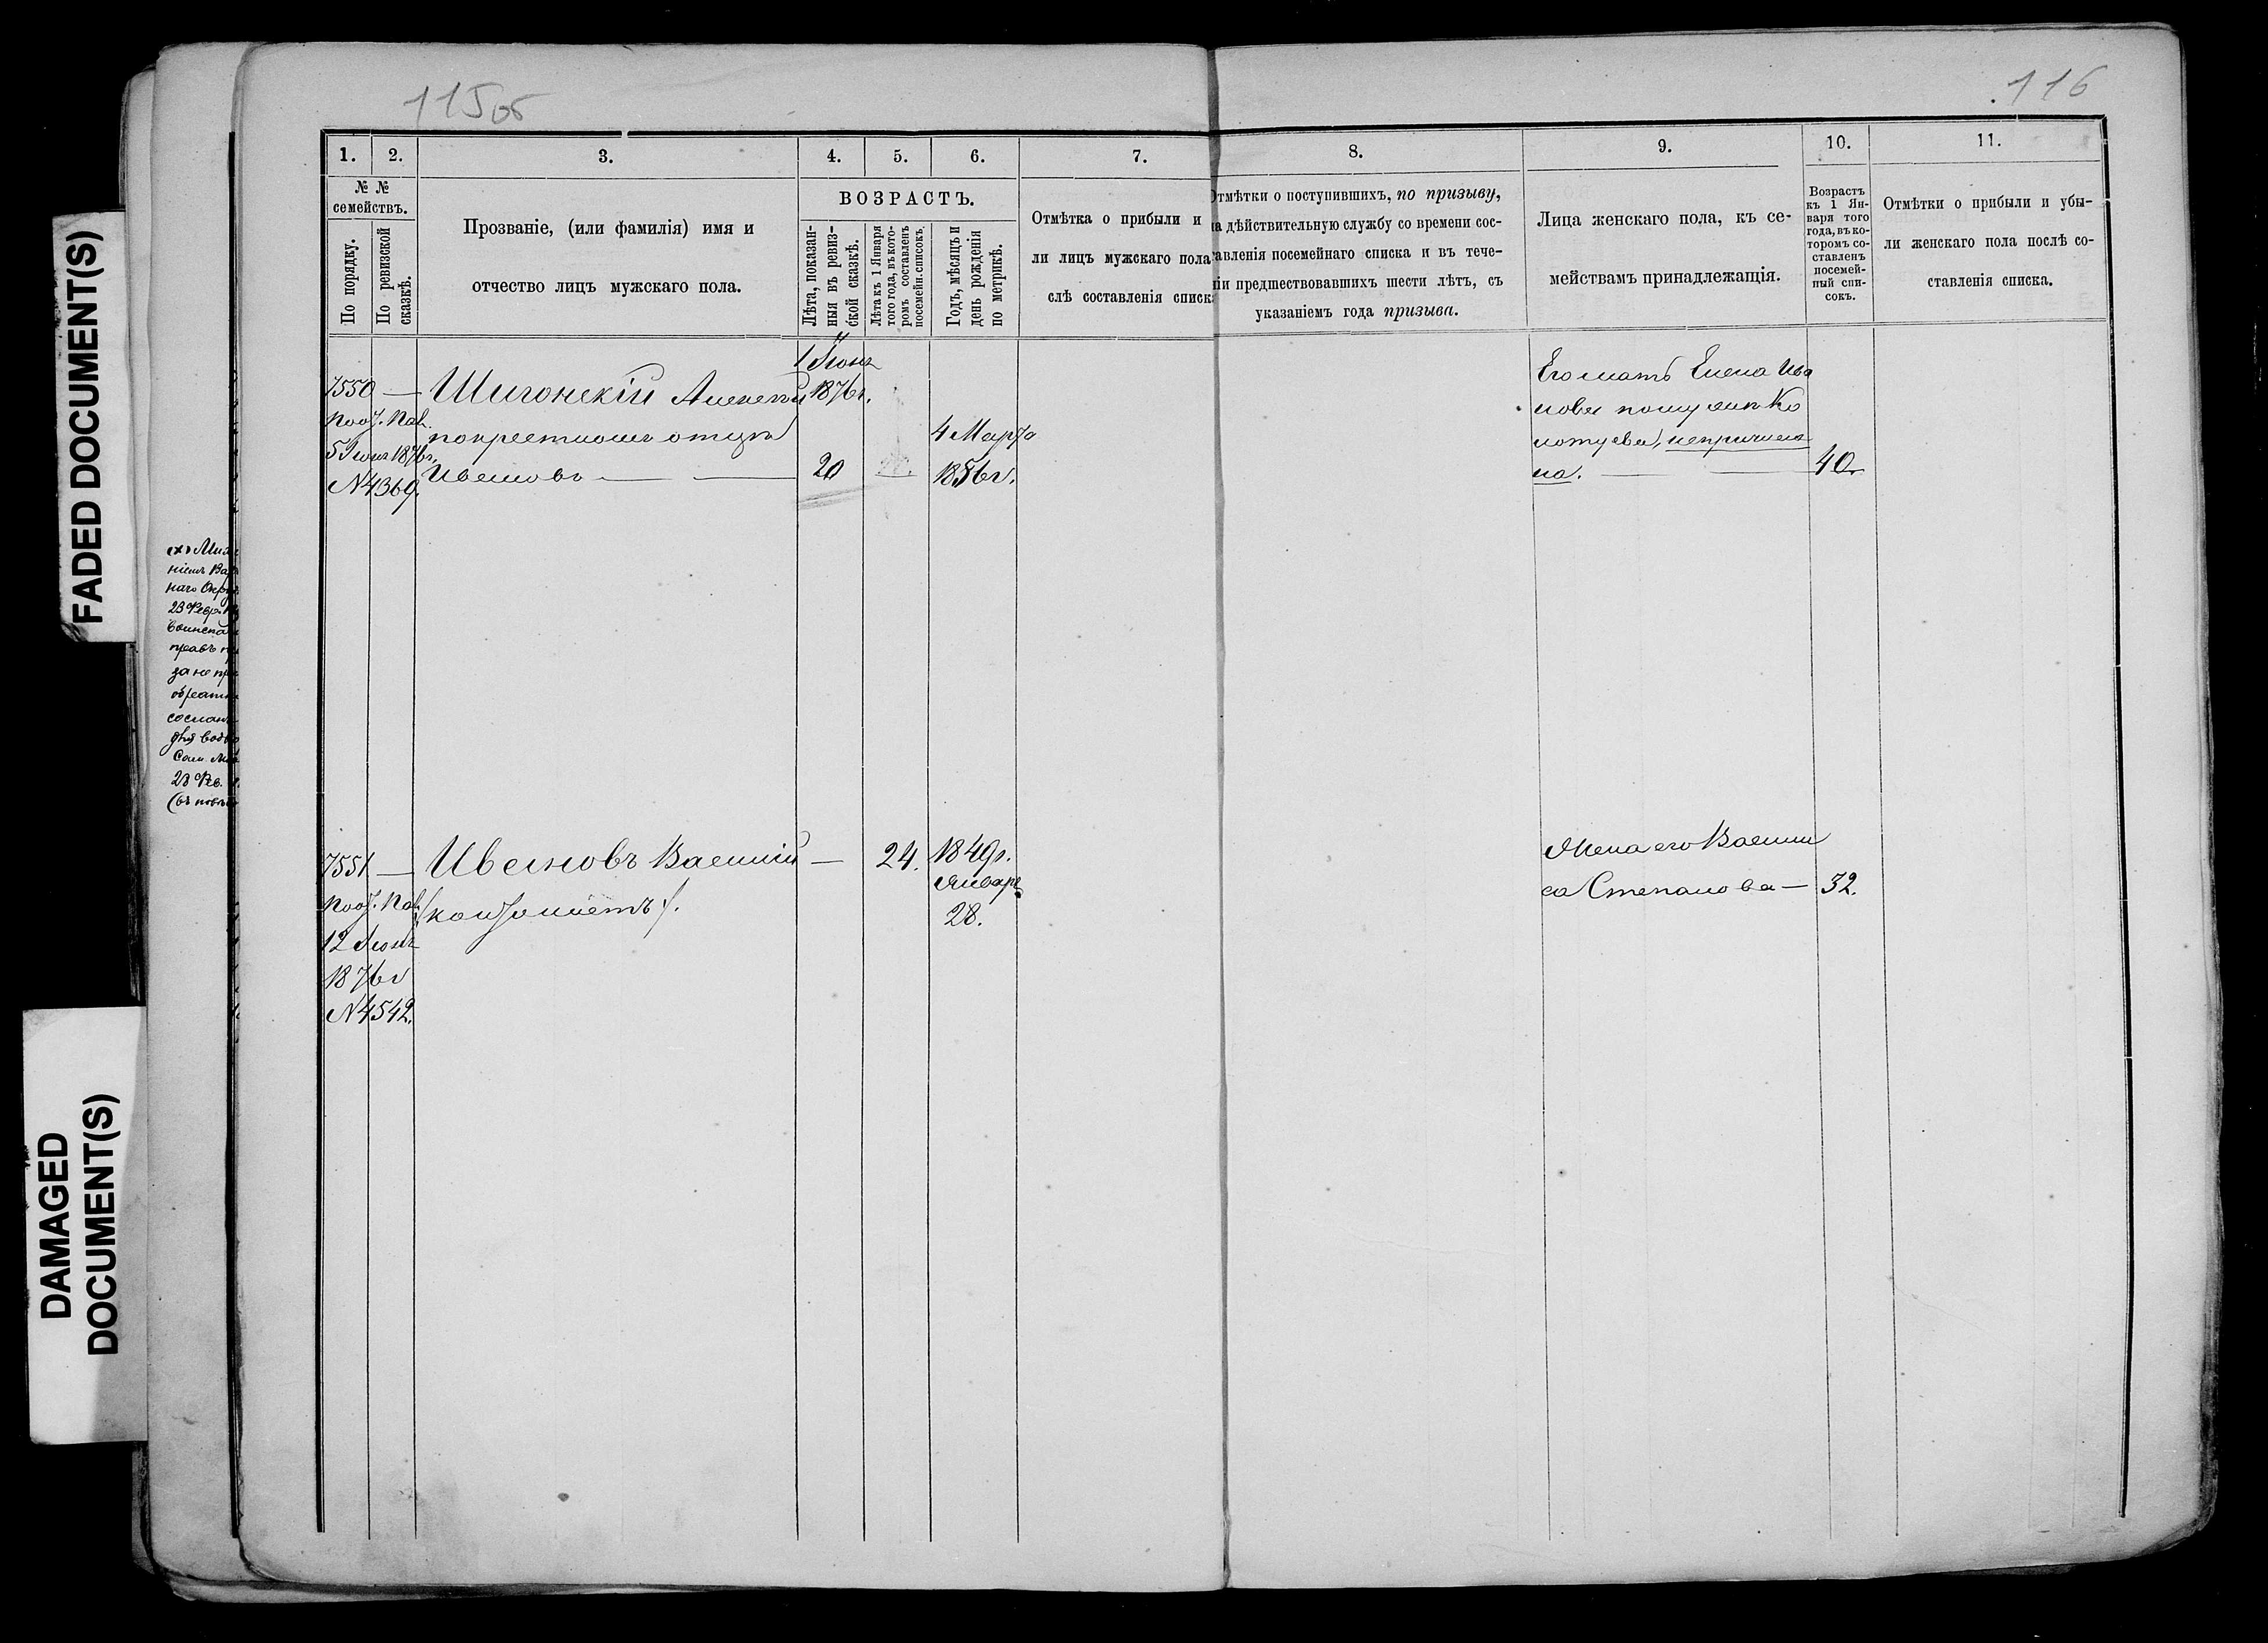 FADED DOCUMENT(S)
DAMAGED
DOCUMENT(S)
115об
116
1.
2.
3.
4.
5.
6.
7.
8.
9.
10.
11.
№ №
семействъ.
По порядку.
По ревизской
сказкѣ.
Прозваніе, (или фамилія) имя и
отчество лицъ мужскаго пола.
ВОЗРАСТЪ.
Лѣта, показан-
ныя въ ревиз-
ской сказкѣ.
Лѣта къ 1 Января
того года, въ кото-
ромъ составленъ
посемейн. списокъ.
Годъ, мѣсяцъ и
день рожденія
по метрикѣ.
Отмѣтка о прибыли и
ли лицъ мужскаго пола
слѣ составленія списк
Отмѣтки о поступившихъ, по призыву,
на дѣйствительную службу со времени сос-
тавленія посемейнаго списка и въ тече-
ніи предшествовавшихъ шести лѣтъ, съ
указаніемъ года призыва.
Лица женскаго пола, къ се-
мействамъ принадлежащія.
Возрастъ
къ 1 Ян-
варя того
года, въ ко-
торомъ со-
ставленъ
посемей-
ный спи-
сокъ.
Отмѣтки о прибыли и убы-
ли женскаго пола послѣ со-
ставленія списка.
7550 — Шигонскій Алексѣй
1 Іюня
1876г.
5 Іюня 1876г.
№ 4369.
покрестному отцу
Ивановъ —
20
4 Марта
1856г.
Его мать Елена Ива
нова по мужу Ко
лотуева, непричисле
на. —
40.
7551 — Ивановъ Василій —
(кантонистъ).
24.
1849г.
Января
28.
12 Іюня
1876г
№ 4542.
Жена его Васили
са Степанова —
32.